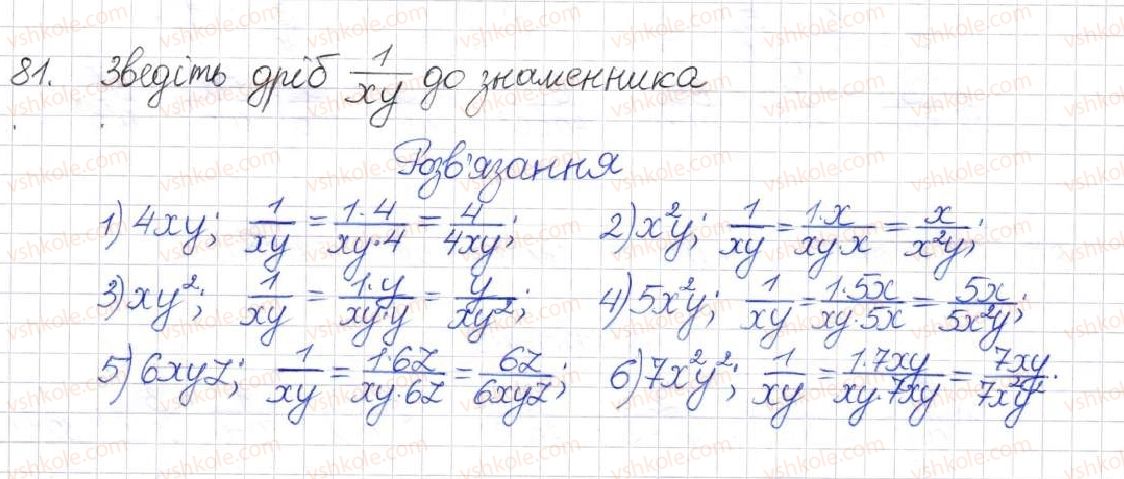 81. Зведіть дріб 1/xy до знаменника
Розв'язання
1) 4xy; 1/xy = 1·4/xy·4 = 4/4xy; 2) x²y; 1/xy = 1·x/xy·x = x/x²y;
3) xy²; 1/xy = 1·y/xy·y = y/xy²; 4) 5x²y; 1/xy = 1·5x/xy·5x = 5x/5x²y;
5) 6xyz; 1/xy = 1·6z/xy·6z = 6z/6xyz; 6) 7x²y²; 1/xy = 1·7xy/xy·7xy = 7xy/7x²y².
vshkole.com